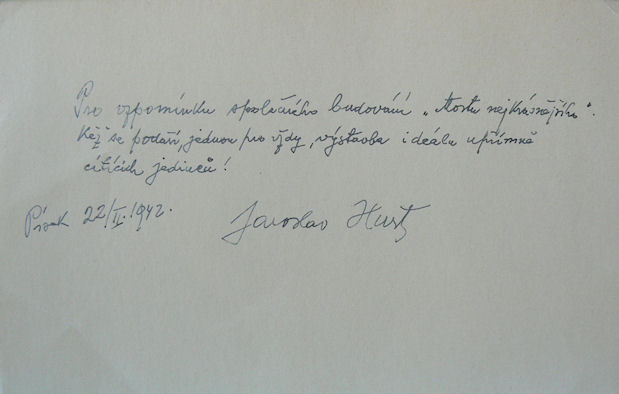 Pro vzpomínku společného budování „Mostu nejkrásnějšího“.
Kéž se podaří, jednou pro vždy, výstavba ideálu upřímně
cítících jedinců!
Písek 22/II. 1942.
Jaroslav Hurt